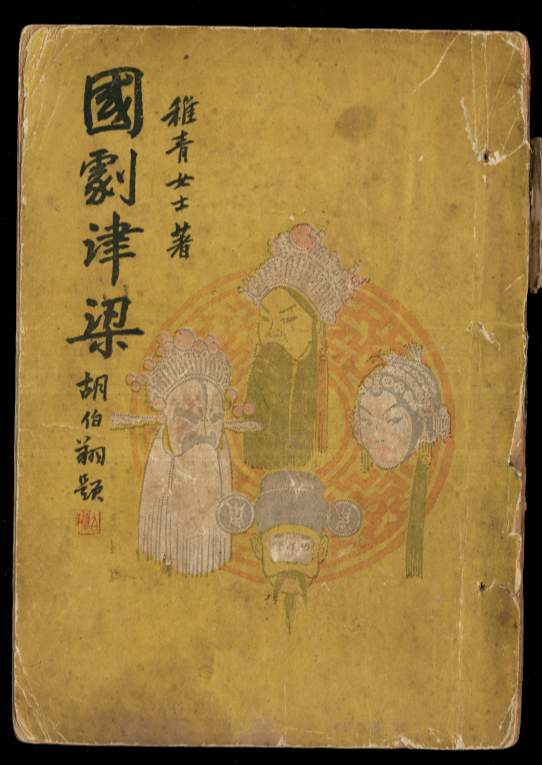 稚青女士著
國劇津梁
胡伯翔題